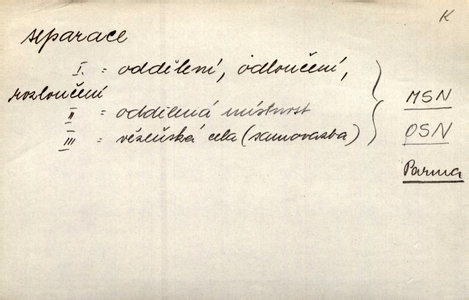 K
separace
I. = oddělení, odloučení,
rozloučení
II = oddělená místnost
III = vězeňská cela (samovazba)
MSN
OSN
Parma